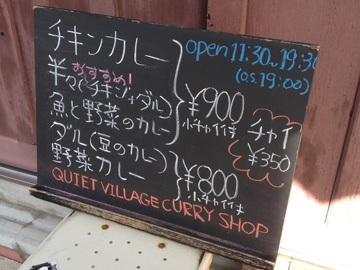 チキンカレー
open 11:30~19:30
(o.s.19:00)
おすすめ!
半々(チキン/ダル)
魚と野菜のカレー
¥900
小チャイ付
チャイ
¥350
ダル(豆のカレー)
野菜カレー
¥800
小チャイ付
QUIET VILLAGE CURRY SHOP